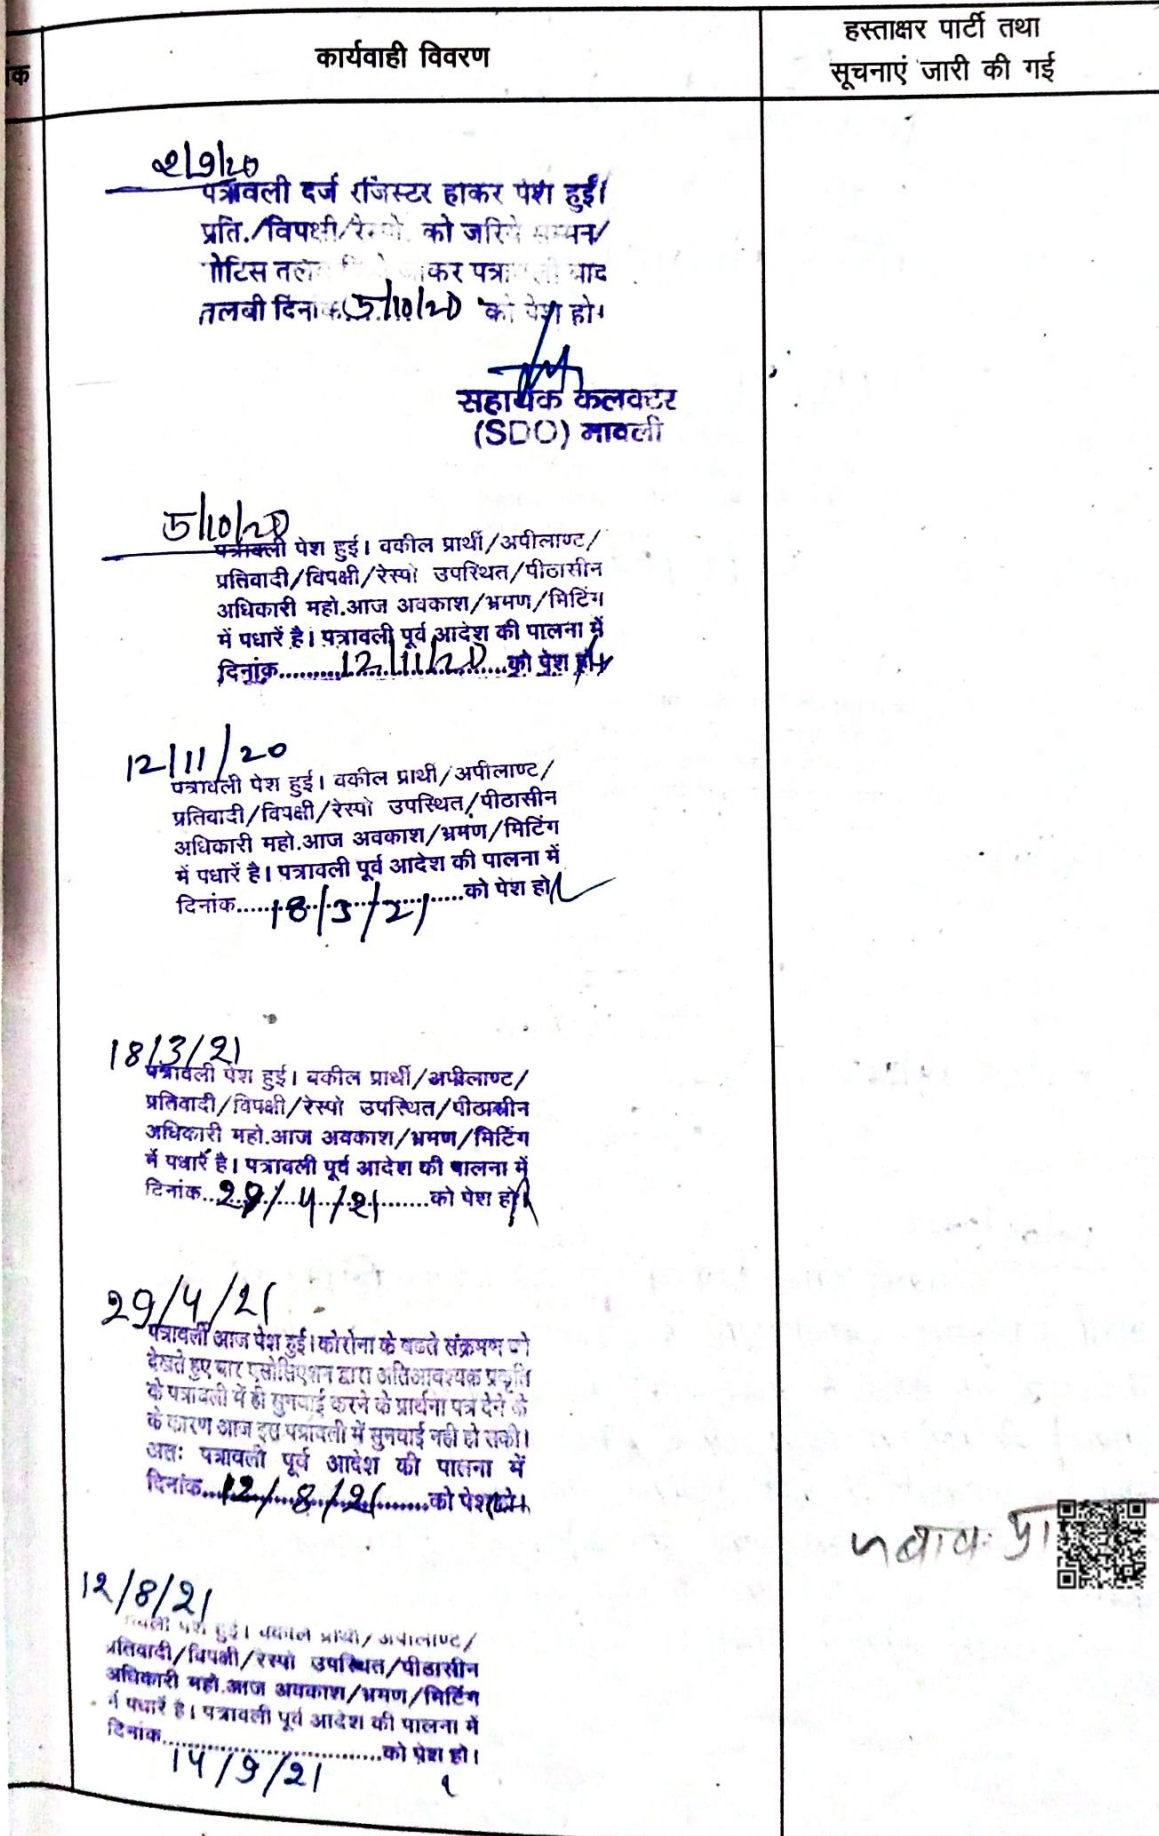 कार्यवाही विवरण
हस्ताक्षर पार्टी तथा
सूचनाएं जारी की गई
2/9/20
पत्रावली दर्ज रजिस्टर होकर पेश हुई।
प्रति./विपक्षी/रेस्पो. को जरिये सम्मन/
नोटिस तलब किये जाकर पत्रावली बाद
तलबी दिनांक 5/10/20 को पेश हो।
सहायक कलक्टर
(SDO) मावली
5/10/20
पत्रावली पेश हुई। वकील प्रार्थी/अपीलाण्ट/
प्रतिवादी/विपक्षी/रेस्पो उपस्थित/पीठासीन
अधिकारी महो.आज अवकाश/भ्रमण/मिटिंग
में पधारें है। पत्रावली पूर्व आदेश की पालना में
दिनांक..........12/11/20..........को पेश हो।
12/11/20
पत्रावली पेश हुई। वकील प्रार्थी/अपीलाण्ट/
प्रतिवादी/विपक्षी/रेस्पो उपस्थित/पीठासीन
अधिकारी महो.आज अवकाश/भ्रमण/मिटिंग
में पधारें है। पत्रावली पूर्व आदेश की पालना में
दिनांक..........18/3/21..........को पेश हो
18/3/21
पत्रावली पेश हुई। वकील प्रार्थी/अपीलाण्ट/
प्रतिवादी/विपक्षी/रेस्पो उपस्थित/पीठासीन
अधिकारी महो.आज अवकाश/भ्रमण/मिटिंग
में पधारें है। पत्रावली पूर्व आदेश की पालना में
दिनांक..........29/4/21..........को पेश हो
29/4/21
पत्रावली आज पेश हुई। कोरोना के बढते संक्रमण को
देखते हुए बार एसोसिएशन द्वारा अतिआवश्यक प्रकृति
के पत्रावली में ही सुनवाई करने के प्रार्थना पत्र देने के
के कारण आज इस पत्रावली में सुनवाई नही हो सकी।
अतः पत्रावली पूर्व आदेश की पालना में
दिनांक..........12/8/21..........को पेश हो।
12/8/21
पत्रावली पेश हुई। वकील प्रार्थी/अपीलाण्ट/
प्रतिवादी/विपक्षी/रेस्पो उपस्थित/पीठासीन
अधिकारी महो.आज अवकाश/भ्रमण/मिटिंग
में पधारें है। पत्रावली पूर्व आदेश की पालना में
दिनांक..............................को पेश हो।
14/9/21